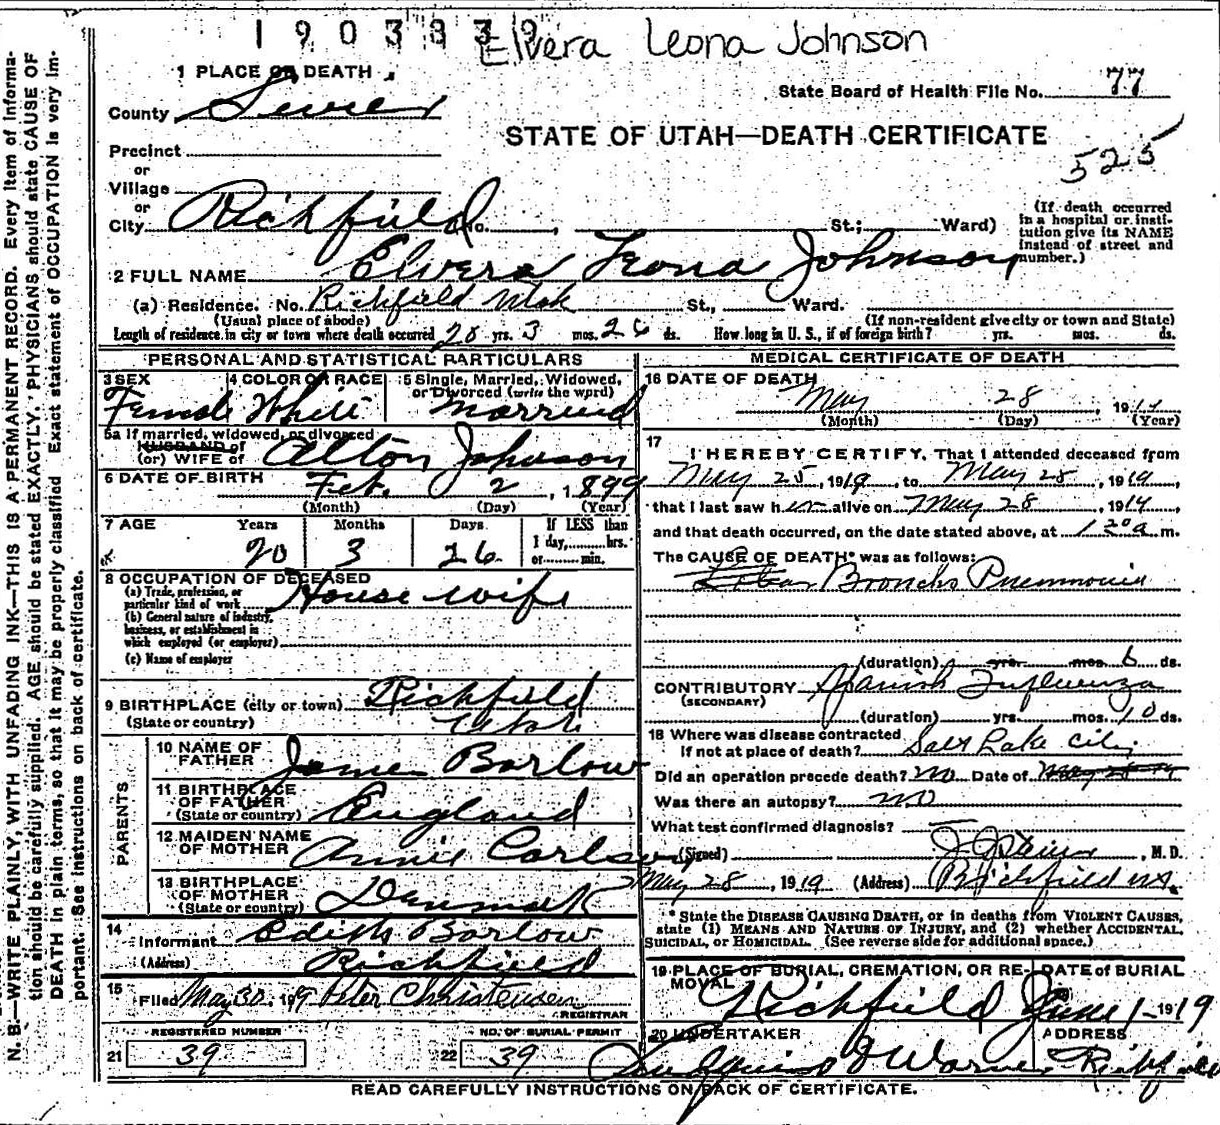 1903839
Elvera Leona Johnson
1 PLACE OF DEATH
State Board of Health File No. 77
County Sevier
STATE OF UTAH—DEATH CERTIFICATE
525
Precinct
or
Village
or
City Richfield No. , St.; Ward)
(If death occurred
in a hospital or insti-
tution give its NAME
instead of street and
number.)
2 FULL NAME Elvera Leona Johnson
(a) Residence. No. Richfield Utah St., Ward.
(Usual place of abode) (If non-resident give city or town and State)
Length of residence in city or town where death occurred 20 yrs. 3 mos. 26 ds. How long in U. S., if of foreign birth? yrs. mos. ds.
PERSONAL AND STATISTICAL PARTICULARS
3 SEX 4 COLOR OR RACE 5 Single, Married, Widowed,
or Divorced (write the word)
Female White Married
5a If married, widowed, or divorced
HUSBAND of
(or) WIFE of Alton Johnson
6 DATE OF BIRTH Feb. 2, 1899
(Month) (Day) (Year)
7 AGE Years Months Days If LESS than
1 day, hrs.
or min.
20 3 26
8 OCCUPATION OF DECEASED
(a) Trade, profession, or
particular kind of work House wife
(b) General nature of industry,
business, or establishment in
which employed (or employer)
(c) Name of employer
9 BIRTHPLACE (city or town) Richfield
(State or country) Utah
PARENTS
10 NAME OF
FATHER James Barlow
11 BIRTHPLACE
OF FATHER
(State or country) England
12 MAIDEN NAME
OF MOTHER Annie Carlson
13 BIRTHPLACE
OF MOTHER
(State or country) Denmark
14
Informant Edith Barlow
(Address) Richfield
15
Filed May 30, 1919 Peter Christensen
REGISTRAR
REGISTERED NUMBER NO. OF BURIAL PERMIT
21 39 22 39
MEDICAL CERTIFICATE OF DEATH
16 DATE OF DEATH
May 28, 1919
(Month) (Day) (Year)
17
I HEREBY CERTIFY, That I attended deceased from
May 25, 1919, to May 28, 1919,
that I last saw her alive on May 28, 1919,
and that death occurred, on the date stated above, at 1 20 a m.
The CAUSE OF DEATH* was as follows:
Lobar Broncho Pneumonia
(duration) yrs. mos. 6 ds.
CONTRIBUTORY Spanish Influenza
(SECONDARY)
(duration) yrs. mos. 10 ds.
18 Where was disease contracted
if not at place of death? Salt Lake City
Did an operation precede death? no Date of
Was there an autopsy? no
What test confirmed diagnosis?
(Signed) , M. D.
May 28, 1919 (Address) Richfield Ut.
* State the DISEASE CAUSING DEATH, or in deaths from VIOLENT CAUSES,
state (1) MEANS AND NATURE OF INJURY, and (2) whether ACCIDENTAL,
SUICIDAL, or HOMICIDAL. (See reverse side for additional space.)
19 PLACE OF BURIAL, CREMATION, OR RE-
MOVAL DATE of BURIAL
Richfield June 1 - 1919
20 UNDERTAKER ADDRESS
Richfield
READ CAREFULLY INSTRUCTIONS ON BACK OF CERTIFICATE.
N. B.—WRITE PLAINLY, WITH UNFADING INK—THIS IS A PERMANENT RECORD. Every item of informa-
tion should be carefully supplied. AGE should be stated EXACTLY. PHYSICIANS should state CAUSE OF
DEATH in plain terms, so that it may be properly classified. Exact statement of OCCUPATION is very im-
portant. See instructions on back of certificate.